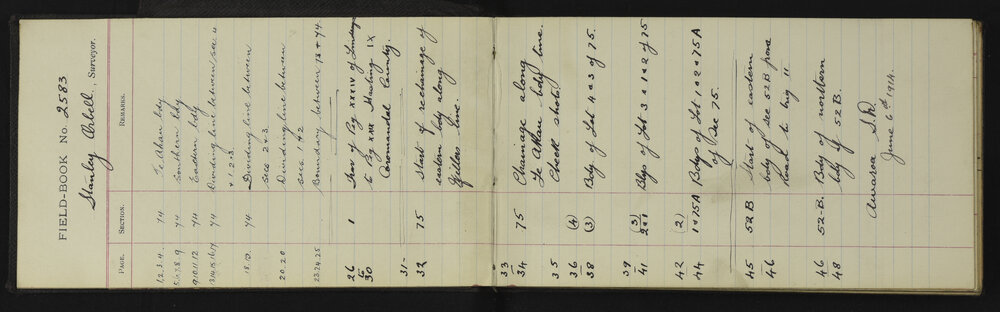 FIELD-BOOK No. 2583
Stanley Orbell, Surveyor.
PAGE. SECTION. REMARKS.
1.2.3.4. 74 Te Ahan bdy
5.6.7.8.9 74 Southern bdy
9.10.11.12. 74 Eastern bdy
74 Dividing line between sec.
+ 1.2+3
18.19. 74 Dividing line between
secs 2+3
20.20 Dividing line between
secs 1+2
23.24.25 Boundary between 75+74
26 to 30 1 Trav of Pg XXXIV of
to Pg Hastings IX
Coromandel County.
31-
32 75 Start of rechainage of
eastern bdy along
line.
33
34 75 Chainage along
Te Ahan bdy line.
35 Check shots
36 (4)
38 (3) Bdy of Lot 4 + 3 of 75.
39 (3)
41 2+1 Bdys of Lot 3 + 1+2 of 75
42 (2)
44 1+75A Bdgs of Lot 1+2+75A
of Sec 75.
45 52B Start of eastern
46 bdy of sec 52B from
Road to trig "
46 52-B. Bdy of northern
48 bdy of 52B.
Awaroa S.D.
June 6th 1914.